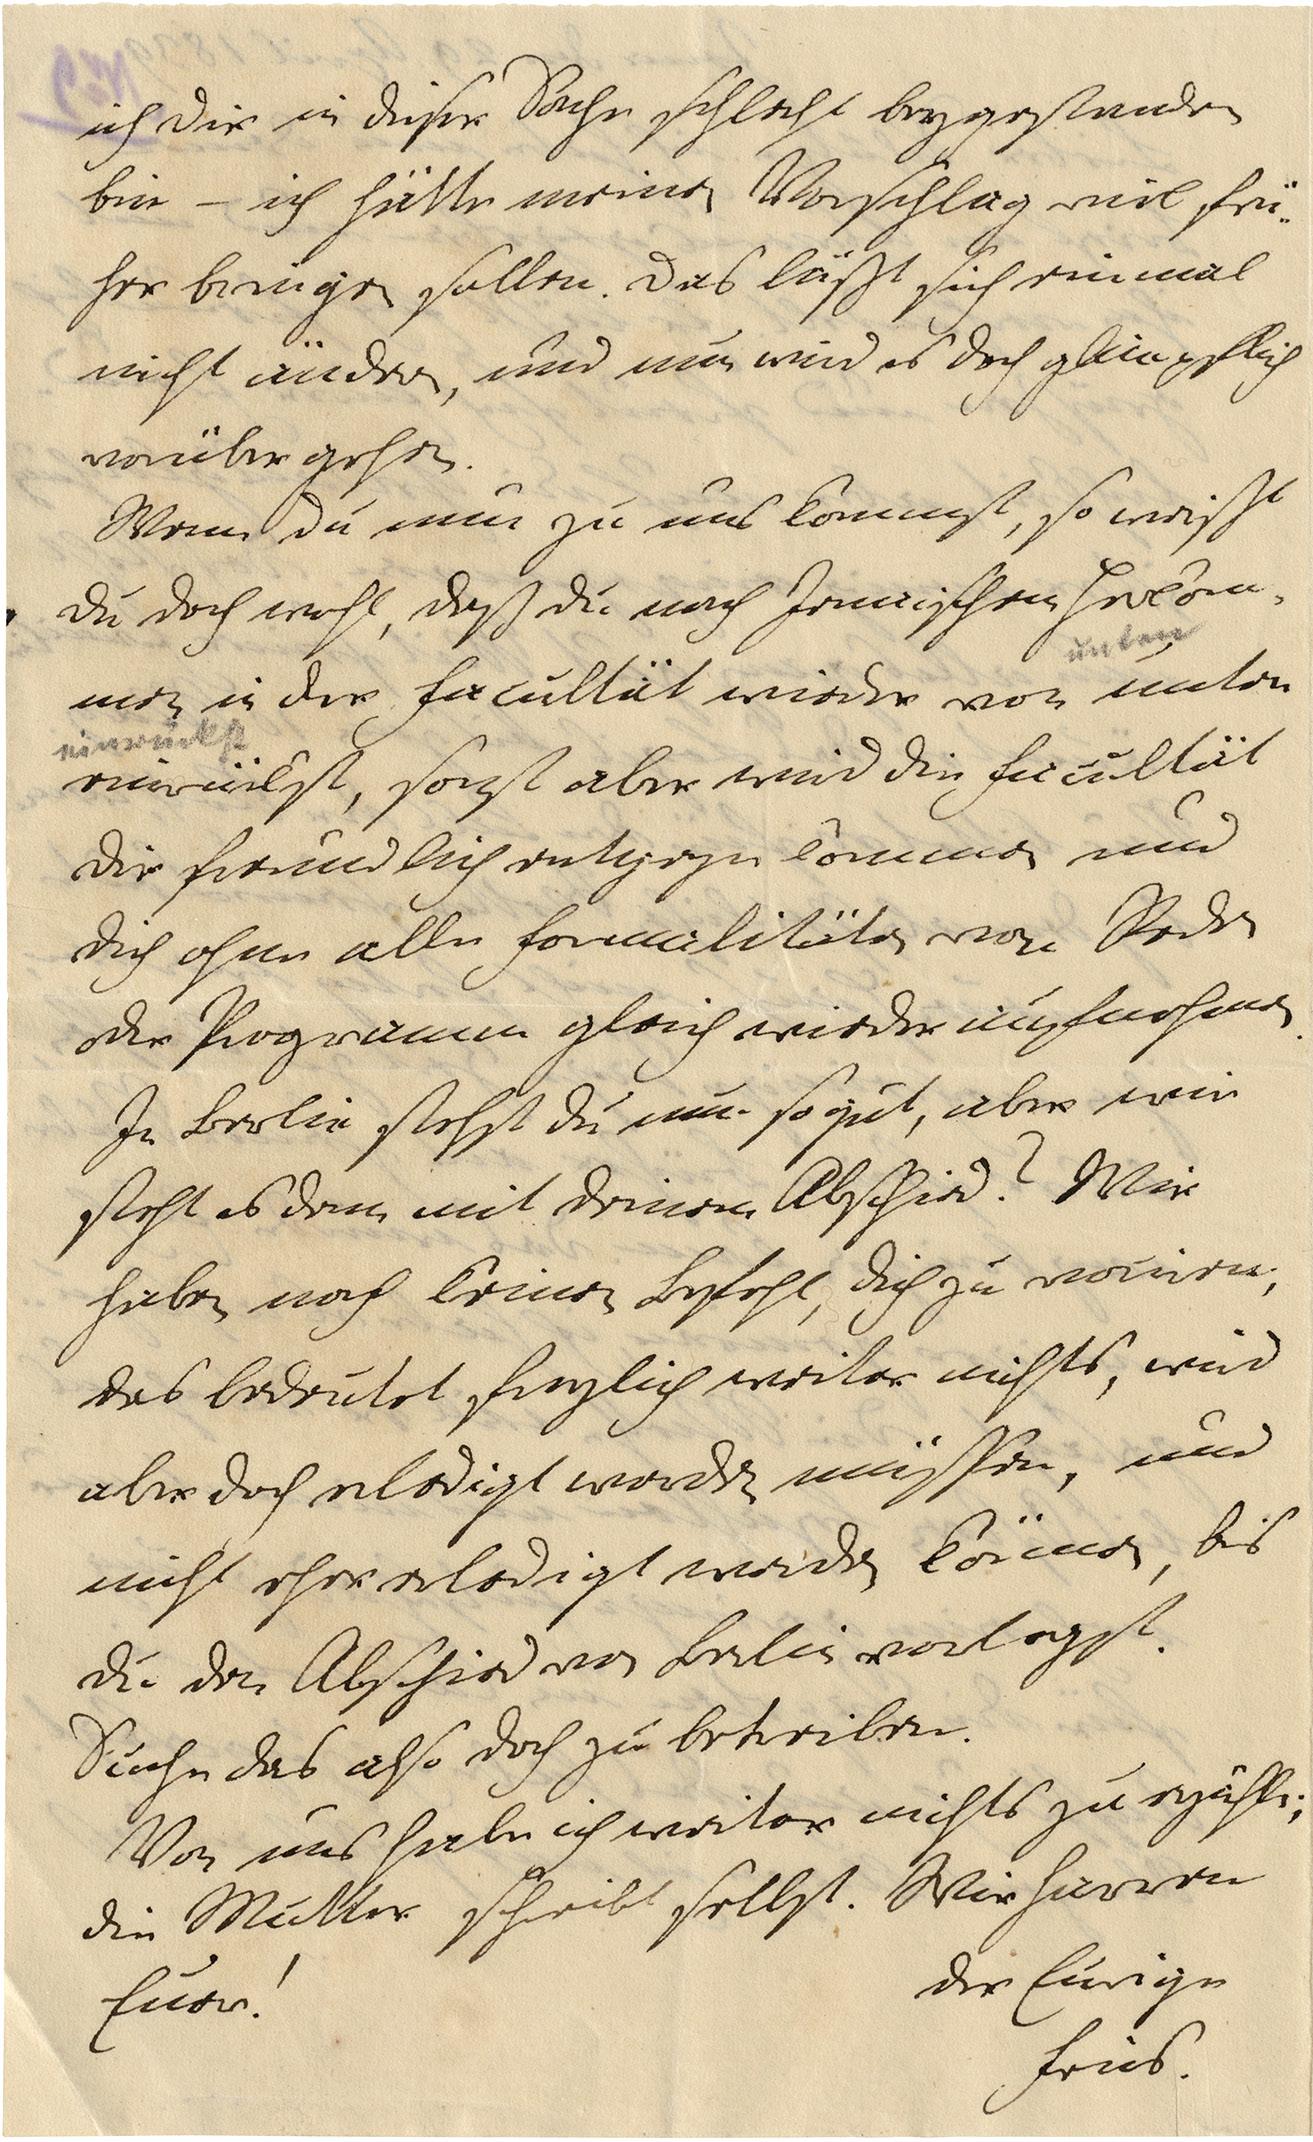 ich Dir in dieser Sache schlecht beygestanden
bin – ich hätte meinen Vorschlag viel frü-
her bringen sollen. Das läßt sich einmal
nicht ändern, und nun wird es doch glimpflich
vorüber gehen.
Wenn Du nun zu uns kommst, so weißt
Du doch wohl, daß Du nach Jenaischem Herkom-
unten
men in der Facultät wieder von unten
einrückst
einrückst, sonst aber wird die Facultät
Dir freundlich entgegen kommen und
Dich ohne alle Formalitäten von Reden
oder Programm gleich wieder aufnehmen.
In Berlin stehst Du nun so gut, aber wie
steht es denn mit Deinem Abschied? Wir
haben noch keinen Befehl, Dich zu
das bedeutet freylich weiter nichts, wird
aber doch erledigt werden müssen, und
nicht eher erledigt werden können, bis
Du den Abschied von Berlin vorlegst.
Suche das also doch zu betreiben.
Von uns habe ich weiter nichts zu erzählen;
die Mutter schreibt selbst. Wir harren
Euer!
der Eurige
Fries.